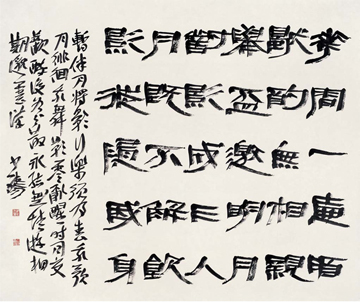 花間一壺酒
獨酌無相親
舉盃邀明月
對影成三人
月既不解飲
影徒隨我身
暫伴月將影行樂須及春我歌
月徘徊我舞影零亂醒時同交
歡醉後各分散永結無情遊相
期邈雲漢